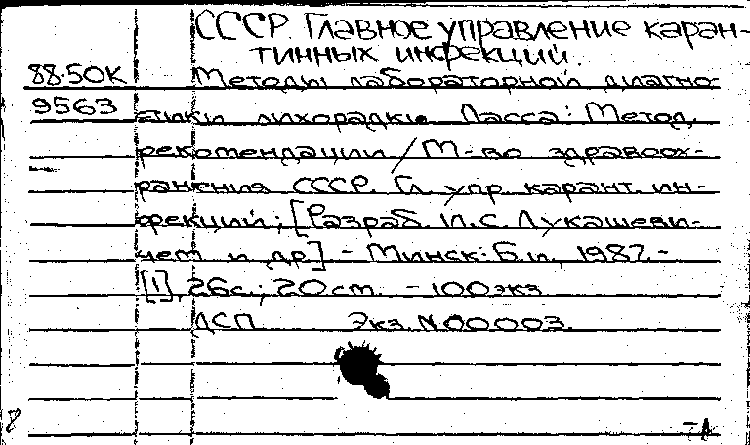 СССР. Главное управление каран-
тинных инфекций.
88.50К Методы лабораторной диагно-
9563 стики лихорадки Ласса: Метод.
рекомендации / М-во здравоох-
ранения СССР. Гл. упр. карант. ин-
фекций; [Разраб. И.С. Лукашеви-
чем и др.] - Минск: Б.и., 1987.-
[1], 26с.; 20 cm. - 100 экз
ДСП Экз. N00003.